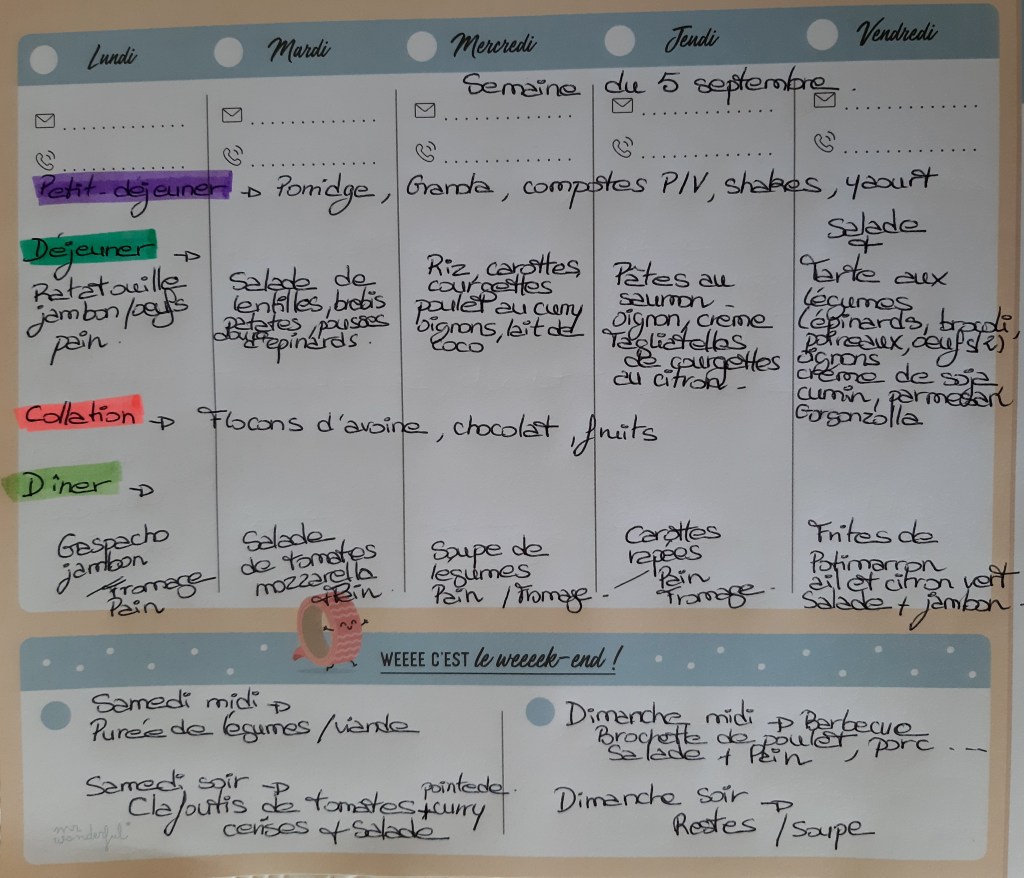 Lundi Mardi Mercredi Jeudi Vendredi
Semaine du 5 septembre.
Petit-déjeuner → Porridge, Granola, compotes P/V, shakes, yaourt
Déjeuner →
Ratatouille
jambon/oeufs
pain.
Salade de
lentilles, brebis
patates, pousses
douces d'épinards.
Riz, carottes,
courgettes
poulet au curry
oignons, lait de
coco
Pâtes au
saumon -
oignon, crème
Tagliatelles
de courgettes
au citron -
Salade
+
Tarte aux
légumes
(épinards, brocoli,
poireaux, oeufs(2)
oignons
crème de soja
cumin, parmesan
Gorgonzolla
Collation → Flocons d'avoine, chocolat, fruits
Dîner →
Gaspacho
jambon
fromage
Pain
Salade
de tomates
mozzarella
+ Pain.
Soupe de
légumes
Pain / fromage -
Carottes
rapées
Pain
Fromage.
Frites de
Potimarron
ail et citron vert
Salade + jambon -
WEEEE C'EST le weeeek-end !
Samedi midi →
Purée de légumes / viande
Samedi soir →
Clafoutis de tomates + pointe de curry
cerises + Salade
Dimanche midi → Barbecue
Brochette de poulet, porc ---
Salade + Pain
Dimanche soir →
Restes / Soupe
mr
wonderful*